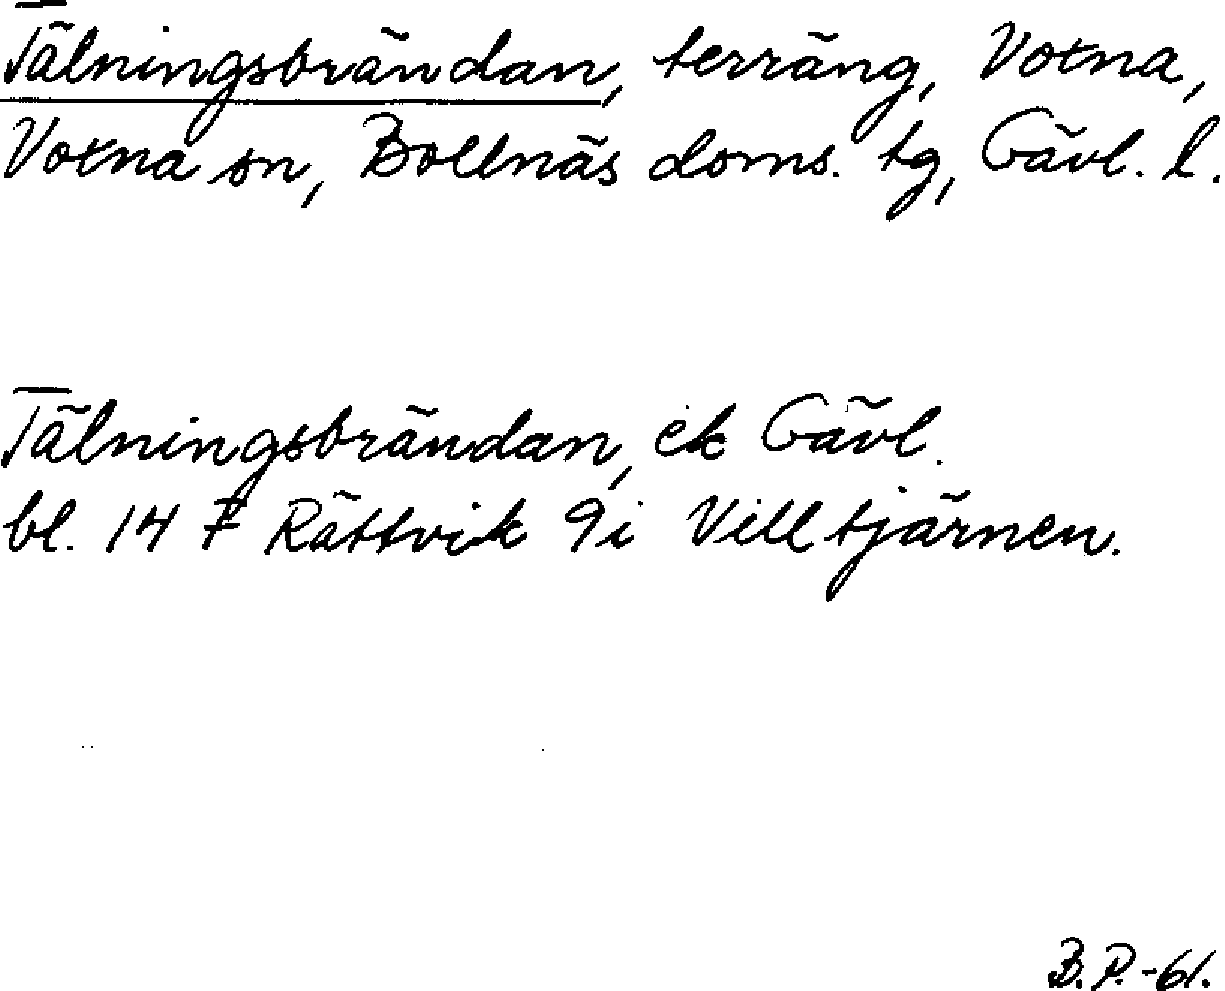 Tälningsbrändan, terräng, Voxna,
Voxna sn, Bollnäs doms. tg, Gävl. l.
Tälningsbrändan, ek Gävl.
bl. 14 F Rättvik 9i Villtjärnen.
B.P.-61.